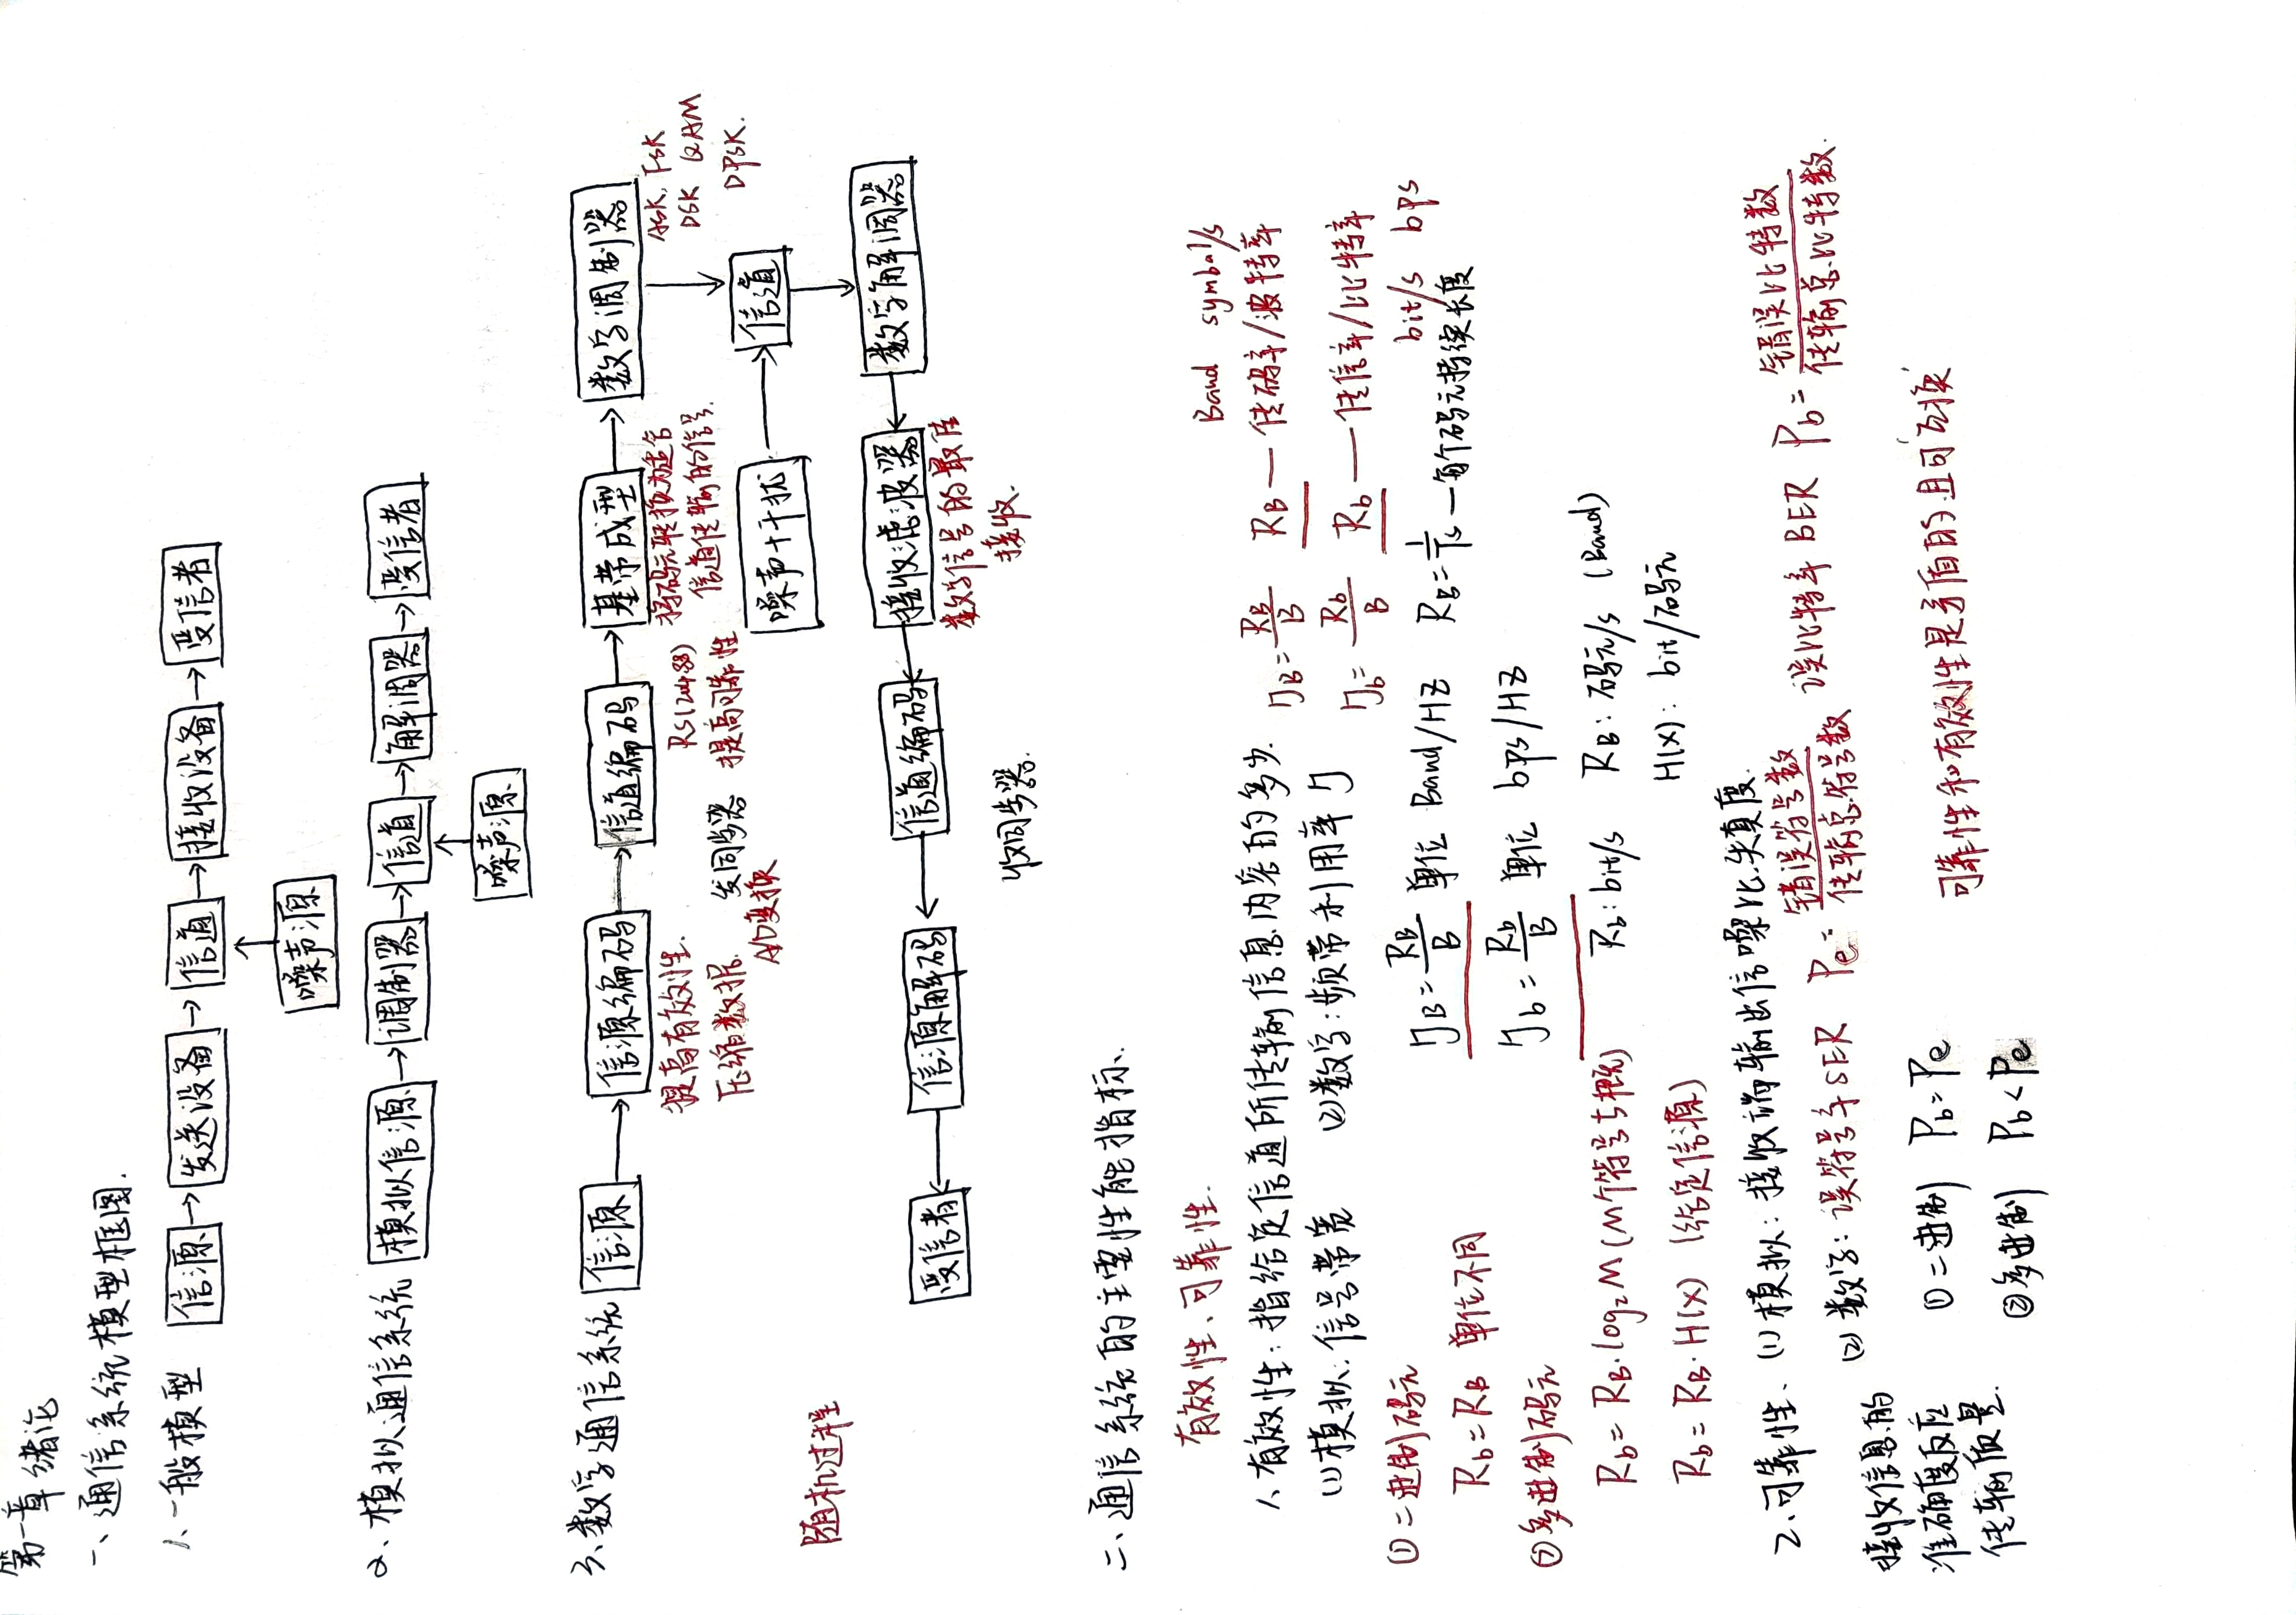 第一章 绪论
一、通信系统模型框图.
1、一般模型 信源→发送设备→信道→接收设备→受信者
↑
噪声源
2、模拟通信系统 模拟信源→调制器→信道→解调器→受信者
↑
噪声源
3、数字通信系统 信源→信源编码→信道编码→基带成型→数字调制器
提高有效性. RS(204.88) 将码元转换为适合 ASK, FSK
压缩数据. 发同步器 提高可靠性 信道传输的信号. DSK QAM
A/D变换 DPSK.
噪声+干扰→信道
随机过程
受信者←信源解码←信道编码←接收滤波器←数字解调器
数字信号的最佳
接收.
收同步器.
二、通信系统的主要性能指标.
有效性、可靠性.
Band symbal/s
1、有效性：指给定信道所传输信息内容的多少. ηB=RB/B RB—传码率/波特率
(1)模拟：信号带宽 (2)数字：频带利用率η ηb=Rb/B Rb—传信率/比特率
bit/s bps
①二进制码元 ηB=RB/B 单位 Band/HZ RB=1/Ts—每个码元持续长度
Rb=RB 单位不同
②多进制码元 ηb=Rb/B 单位 bps/HZ
Rb=RB·log₂M(M个符号与概) Rb:bit/s RB:码元/s (Band)
Rb=RB·H(X) (给定信源) H(X): bit/码元
2、可靠性、(1)模拟：接收端输出信噪比.失真度.
(2)数字：误符号率SER Pe=错误符号数/传输总符号数 误比特率BER Pb=错误比特数/传输总比特数.
接收信息的
准确度反应
传输质量.
①二进制 Pb=Pe
可靠性和有效性是矛盾的.且可‘互换’
②多进制 Pb<Pe